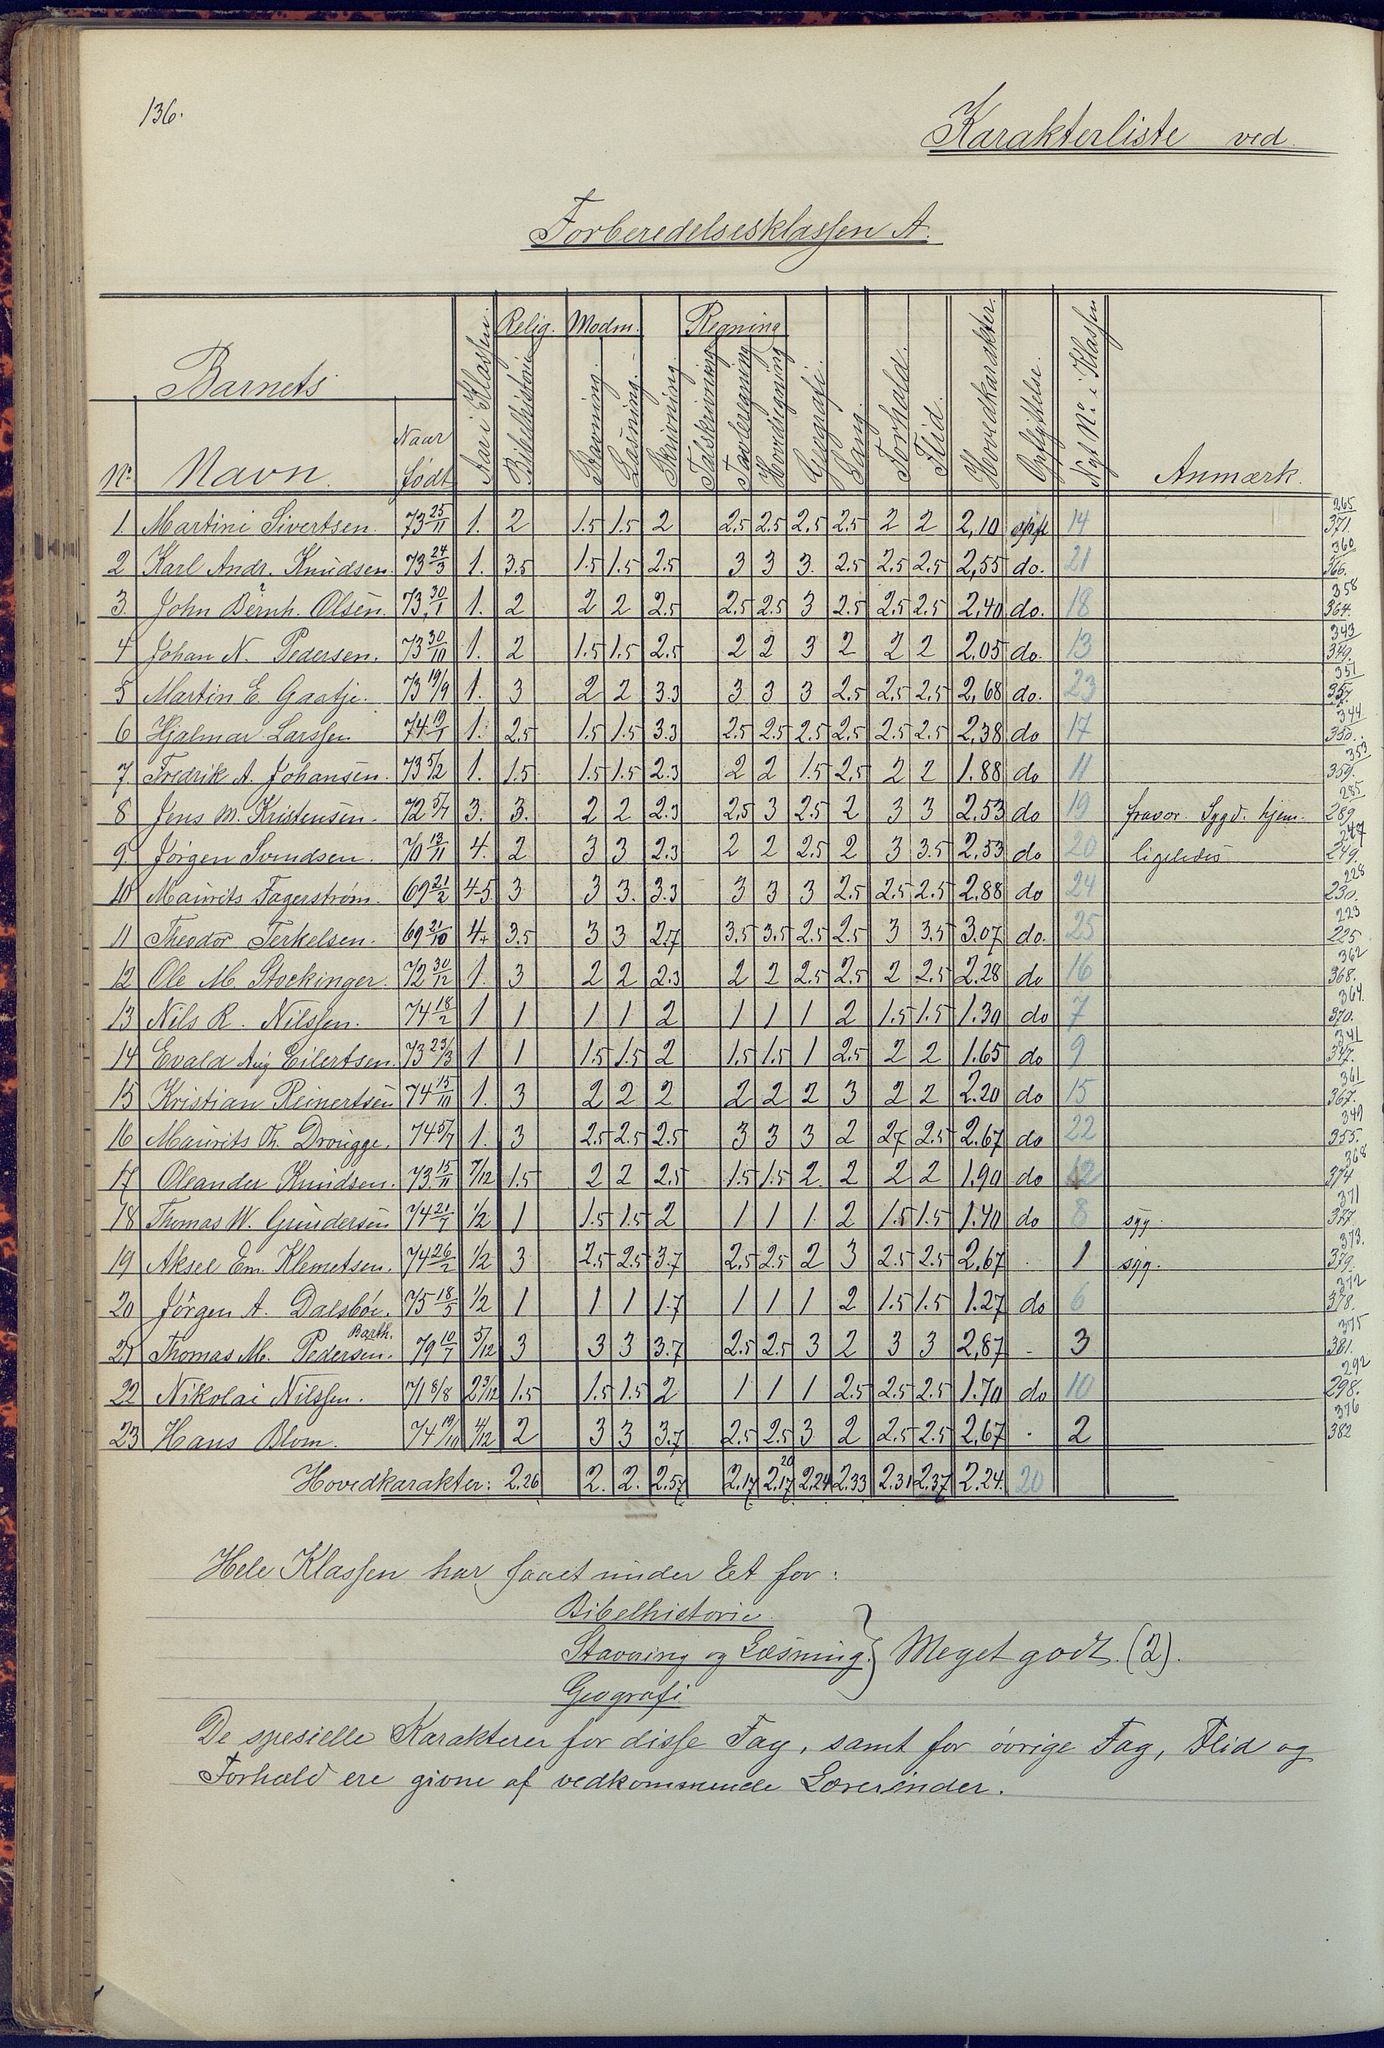 136.
Karakterliste ved
Forberedelsesklassen A.
Relig. Modm. Regning
Barnets
Nr. Navn. Naar født Aar i Klassen. Bibelhistorie Stavning. Læsning. Skrivning. Talskrivning Tavleregning Hovedregning Geografi. Sang. Forhold. Flid. Hovedkarakter. Opflyttelse. Nyt No. i Klassen Anmærk.
1 Martini Sivertsen. 73 25/11 1. 2 1.5 1.5 2 2.5 2.5 2.5 2.5 2 2 2,10 opfl 14 265/371
2 Karl Andr. Knudsen. 73 24/3 1. 3.5 1.5 1.5 2.5 3 3 3. 2.5 2.5 2.5 2,55 do. 21 360/366.
3. John Bernh. Olsen. 73, 30/1 1. 2 2 2 2.5 2.5 2.5 3 2.5 2.5 2.5 2,40 do. 18 358/364.
4 Johan N. Pedersen. 73 30/10 1. 2 1.5 1.5 2.5 2 2 3 2 2 2 2,05 do. 13 343/349.
5 Martin E. Gaatje. 73 19/9 1. 3 2 2 3.3 3 3 3 2.5 2.5 2.5 2,68 do. 23 351/357.
6 Hjalmar Larssen 74 19/1 1. 2.5 1.5 1.5 3.3 2.5 2.5 2.5 2.5 2.5 2.5 2,38 do 17 344/350.
7 Fredrik A. Johansen. 73 5/2 1. 1.5 1.5 1.5 2.3 2 2 1.5 2.5 2 2 1.88 do 11 353/359.
8 Jens M. Kristensen. 72 5/7 3. 3. 2 2 2.3 2,5 3 2.5 2 3 3 2.53 do 19 fravær. Sygd. hjem. 285/289
9 Jørgen Svendsen. 70 13/11 4. 2 3 3 2.3 2 2 2.5 2 3 3.5 2.53 do 20 ligeledes 247/249.
10 Maurits Fagerstrøm. 69 21/2 4-5. 3 3 3. 3.3 3 3 3 2.5 2.5 2.5 2.88 do 24 228/230.
11 Theodor Terkelsen. 69 21/10 4+ 3.5 3 3 2.7 3.5 3.5 2.5 2.5 3 3.5 3.07 do. 25 223/225.
12 Ole M. Stockinger. 72 30/12 1. 3 2 2 2.3 2 2 2.5 2.5 2 2.5 2.28 do 16 362/368.
13 Nils R. Nilssen. 74 18/2 1 1 1 1 2 1 1 1 2 1.5 1.5 1.30 do 7 364/370.
14 Evald Aug Eilertsen. 73 23/3 1 1 1.5 1.5 2 1.5 1.5 1 2.5 2 2 1.65 do 9 341/347.
15 Kristian Reinertsen 74 15/10 1. 3 2 2 2 2 2 2 3 2 2 2.20 do 15 361/367.
16 Maurits Th. Drougge. 74 5/7 1. 3 2.5 2.5 2.5 3 3 3 2 2.7 2.5 2.67 do 22 349/355.
17 Oleander Knudsen. 73. 15/11 7/12 1.5 2 2 2.5 1.5 1.5 2 2 2 2 1.90 do 12 368/374
18 Thomas W. Gundersen 74 21/7 1/2 1 1.5 1.5 2 1 1 1. 2 1.5 1.5 1.40 do 8 syg. 371/377
19 Aksel Em. Klemetsen. 74 26/2 1/2 3 2.5 2.5 3.7 2,5 2.5 2 3 2.5 2.5 2,67 . 1 syg. 373./379.
20 Jørgen A. Dalsbøe. 75 18/5 1/2 1 1 1 1.7 1 1 1 2 1.5 1.5 1.27 do 6 372/378.
Barth.
21 Thomas M. Pedersen. 79 10/7 5/12 3 3 3 3.7 2.5 2.5 3 2 3 3 2,87 - 3 375/381.
22 Nikolai Nilssen. 71 8/8 2 3/12 1.5 1.5 1.5 2 1 1 1 2.5 2.5 2.5 1.70 do 10 292/298.
23 Hans Blom. 74 19/10 4/12 2 3 3 3.7 2.5 2.5 3 2 2.5 2.5 2,67 . 2 376/382
Hovedkarakter: 2.26 2. 2. 2.57 2.17 2.17 20 2,24 2.33 2.31 2.37 2.24. 20
Hele Klassen har faaet under Et for:
Bibelhistorie.
Stavning og Læsning. } Meget godt. (2).
Geografi
De spesielle Karakterer for disse Fag, samt for øvrige Fag, Flid og
Forhold ere givne af vedkommende Lærerinder.